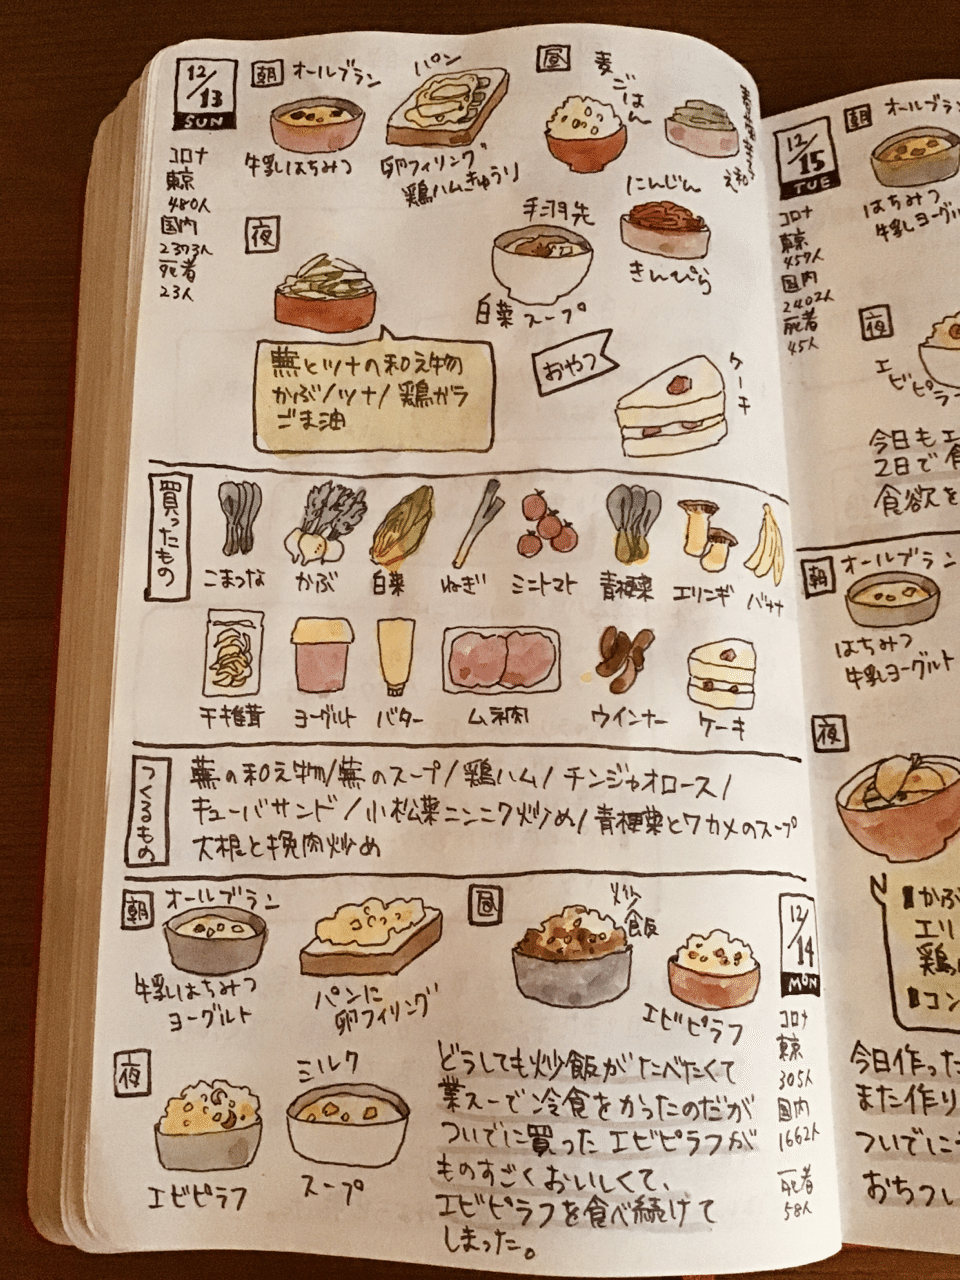 12/13
SUN
コロナ
東京
480人
国内
2373人
死者
23人
朝
オールブラン
牛乳はちみつ
パン
卵フィリング
鶏ハムきゅうり
昼
麦ごはん
にんじん
きんぴら
手羽先
白菜スープ
夜
蕪とツナの和え物
かぶ/ツナ/鶏ガラ
ごま油
おやつ
ケーキ
買ったもの
こまつな
かぶ
白菜
ねぎ
ミニトマト
青梗菜
エリンギ
バナナ
干椎茸
ヨーグルト
バター
ムネ肉
ウインナー
ケーキ
つくるもの
蕪の和え物/蕪のスープ/鶏ハム/チンジャオロース/
キューバサンド/小松菜ニンニク炒め/青梗菜とワカメのスープ
大根と挽肉炒め
12/14
MON
コロナ
東京
305人
国内
1662人
死者
58人
朝
オールブラン
牛乳はちみつ
ヨーグルト
パンに
卵フィリング
昼
炒飯
エビピラフ
夜
エビピラフ
ミルク
スープ
どうしても炒飯がたべたくて
業スーで冷食をかったのだが
ついでに買ったエビピラフが
ものすごくおいしくて、
エビピラフを食べ続けて
しまった。
12/15
TUE
コロナ
東京
457人
国内
2402人
死者
45人
朝
オールブラン
はちみつ
牛乳ヨーグル
夜
エビピラ
今日もエ
2日で食
食欲を
朝
オールブラン
はちみつ
牛乳ヨーグルト
夜
かぶ
エリ
鶏
コン
今日作った
また作り
ついでに
おちつし